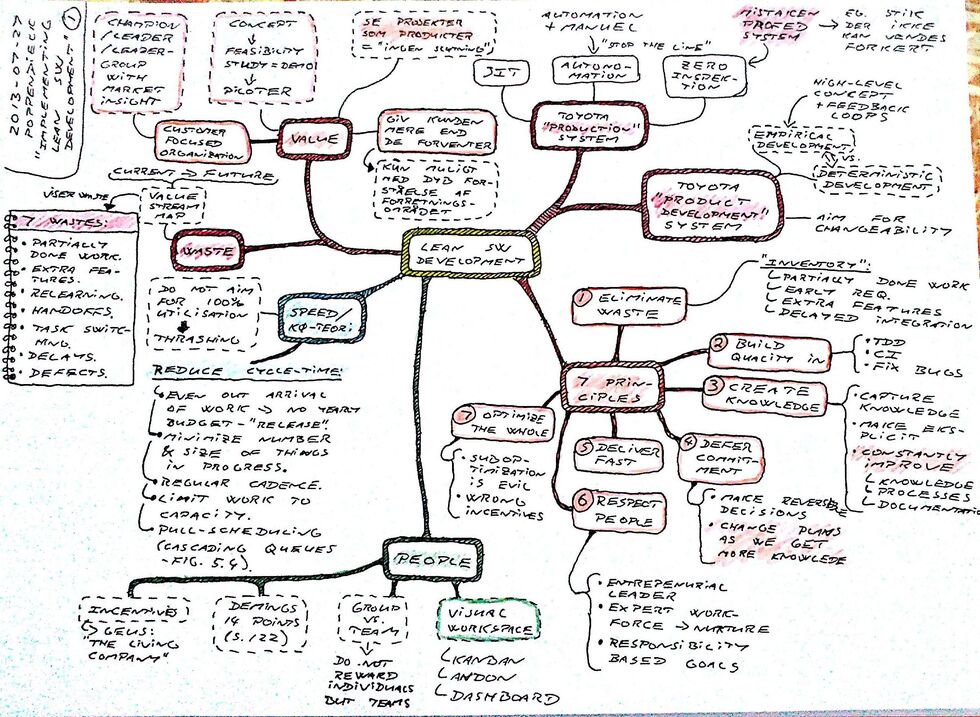 2013-07-27
POPPENDIECK
"IMPLEMENTING
LEAN SW
DEVELOPMENT"
1
CHAMPION
/LEADER
/LEADER-
GROUP
WITH
MARKET
INSIGHT
CONCEPT
FEASIBILITY
STUDY = DEMO
PILOTER
SE PROJEKTER
SOM PRODUKTER
= "INGEN SLUTNING")
CUSTOMER
FOCUSED
ORGANIZATION
VALUE
GIV KUNDEN
MERE END
DE FORVENTER
KUN MULIGT
MED DYB FOR-
STÅELSE AF
FORRETNINGS-
OMRÅDET
AUTOMATION
+ MANUEL
"STOP THE LINE"
JIT
AUTONO-
MATION
ZERO
INSPEK-
TION
MISTAKEN
PROFED
SYSTEM
EG. STIK
DER IKKE
KAN VENDES
FORKERT
TOYOTA
"PRODUCTION"
SYSTEM
HIGH-LEVEL
CONCEPT
+ FEEDBACK
LOOPS
EMPIRICAL
DEVELOPMENT
VS.
DETERMINISTIC
DEVELOPMENT
TOYOTA
"PRODUCT
DEVELOPMENT"
SYSTEM
AIM FOR
CHANGEABILITY
CURRENT → FUTURE
VALUE
STREAM
MAP
VISER WASTE
WASTE
7 WASTES:
• PARTIALLY
DONE WORK.
• EXTRA FEA-
TURES.
• RELEARNING.
• HANDOFFS.
• TASK SWITC-
HNG.
• DELAYS.
• DEFECTS.
LEAN SW
DEVELOPMENT
SPEED/
KØ-TEORI
DO NOT AIM
FOR 100%
UTILISATION
THRASHING
REDUCE CYCLE-TIME:
• EVEN OUT ARRIVAL
OF WORK → NO YEARY
BUDGET-"RELEASE".
• MINIMIZE NUMBER
& SIZE OF THINGS
IN PROGRESS.
• REGULAR CADENCE.
• LIMIT WORK TO
CAPACITY.
• PULL-SCHEDULING
(CASCADING QUEUES
-FIG. 5.4).
7 PRIN-
CIPLES
1 ELIMINATE
WASTE
"INVENTORY":
PARTIALLY DONE WORK
EARLY REQ.
EXTRA FEATURES
DELAYED INTEGRATION
2 BUILD
QUALITY IN
• TDD
• CI
• FIX BUGS
3 CREATE
KNOWLEDGE
• CAPTURE
KNOWLEDGE
• MAKE EKS-
PLICIT
• CONSTANTLY
IMPROVE
KNOWLEDGE
PROCESSES
DOCUMENTATIO
4 DEFER
COMMIT-
MENT
• MAKE REVERSIBLE
DECISIONS
• CHANGE PLANS
AS WE GET
MORE KNOWLEDE
5 DELIVER
FAST
6 RESPECT
PEOPLE
• ENTREPENURIAL
LEADER
• EXPERT WORK-
FORCE → NURTURE
• RESPONSIBILITY
BASED GOALS
7 OPTIMIZE
THE WHOLE
• SUBOP-
TIMIZATION
IS EVIL
• WRONG
INCENTIVES
PEOPLE
INCENTIVES
→ GEUS:
"THE LIVING
COMPANY"
DEMINGS
14 POINTS
(S. 122)
GROUP
VS.
TEAM
DO NOT
REWARD
INDIVIDUALS
BUT TEAMS
VISUAL
WORKSPACE
KANBAN
ANDON
DASHBOARD